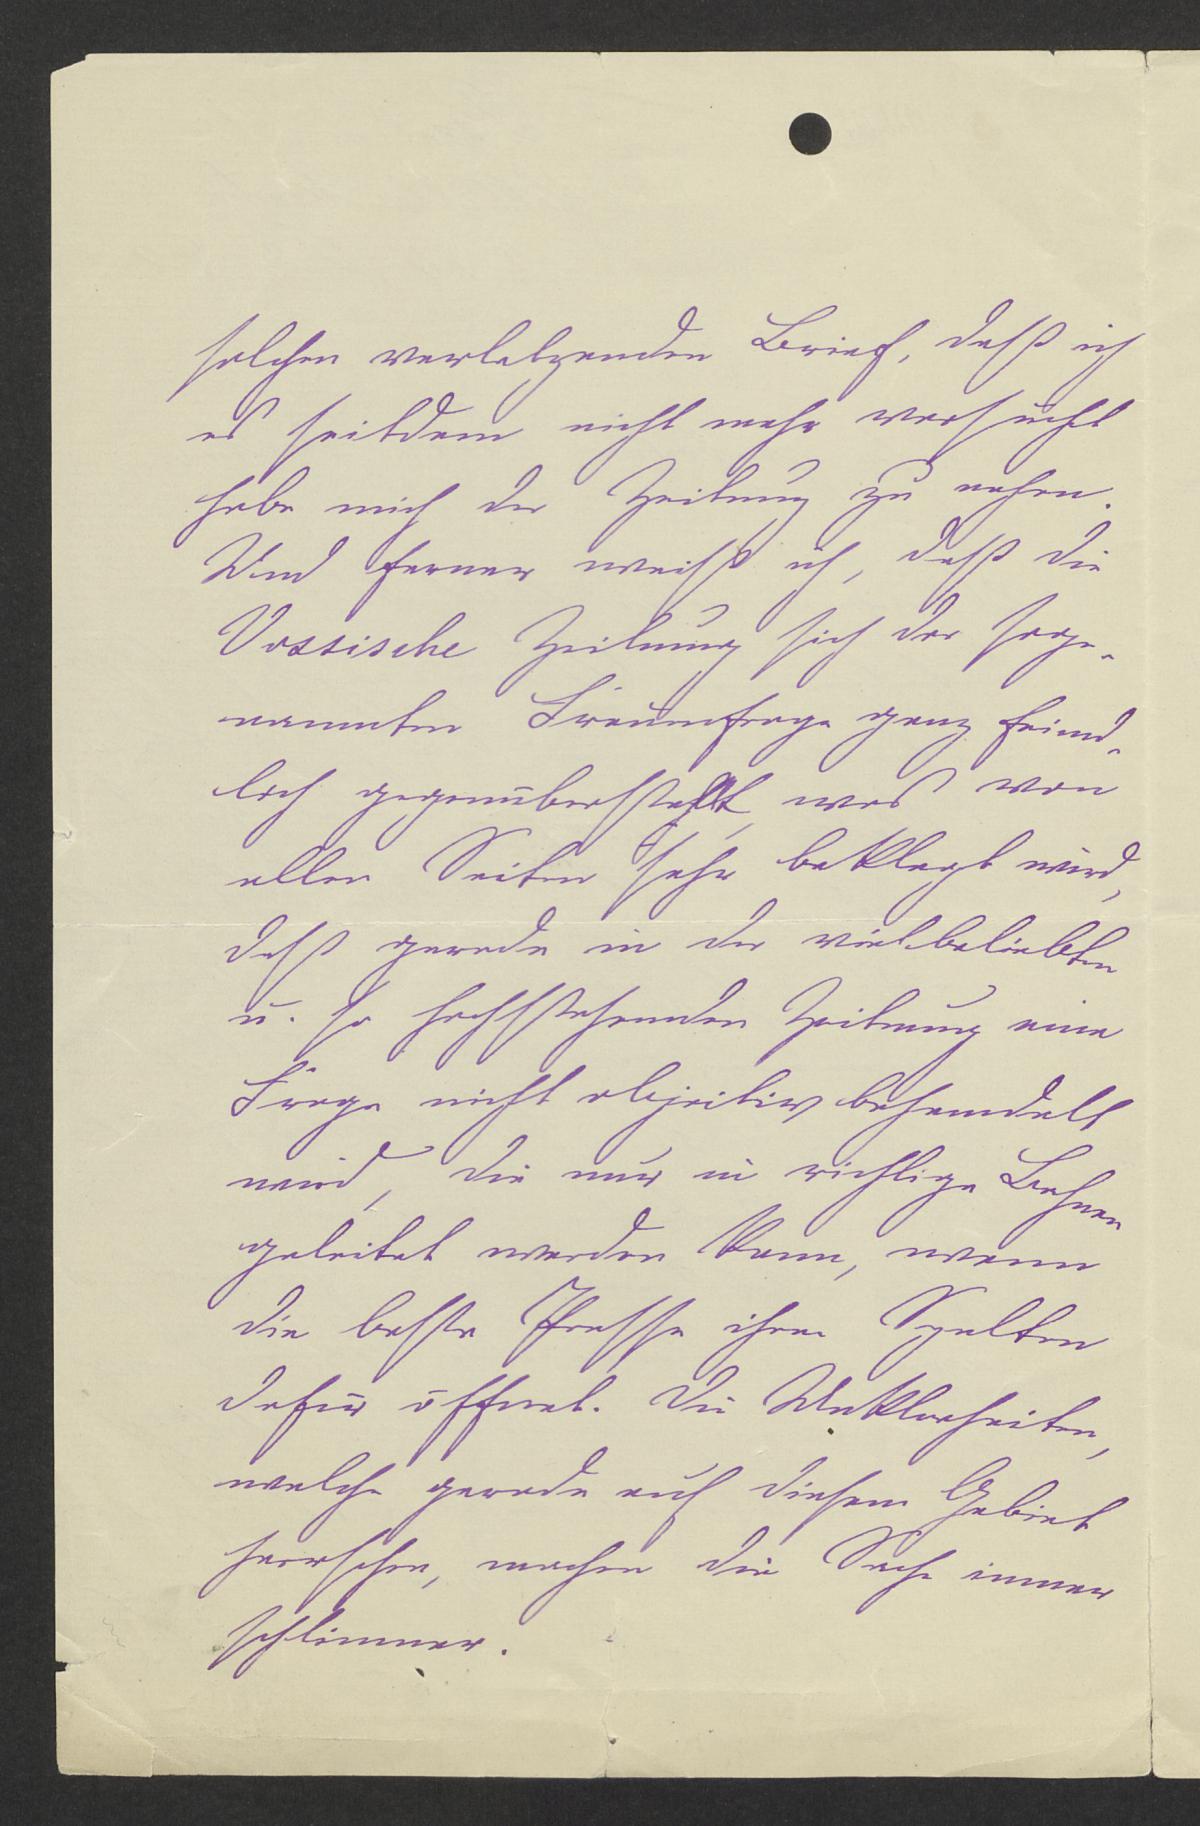 solchen verletzenden Brief, daß ich
es seitdem nicht mehr versucht
habe mich der Zeitung zu nahen.
Und ferner weiß ich, daß die
Vossische Zeitung sich der soge-
nannten Frauenfrage ganz feind-
lich gegenüberstellt, was von
allen Seiten sehr beklagt wird,
daß gerade in der vielbeliebten
u. so hochstehenden Zeitung eine
Frage nicht objectiv behandelt
wird, die nur in richtige Bahnen
geleitet werden kann, wenn
die beste Presse ihre Spalten
dafür öffnet. Die Unklarheiten,
welche gerade auf diesem Gebiet
herrschen, machen die Sache immer
schlimmer.